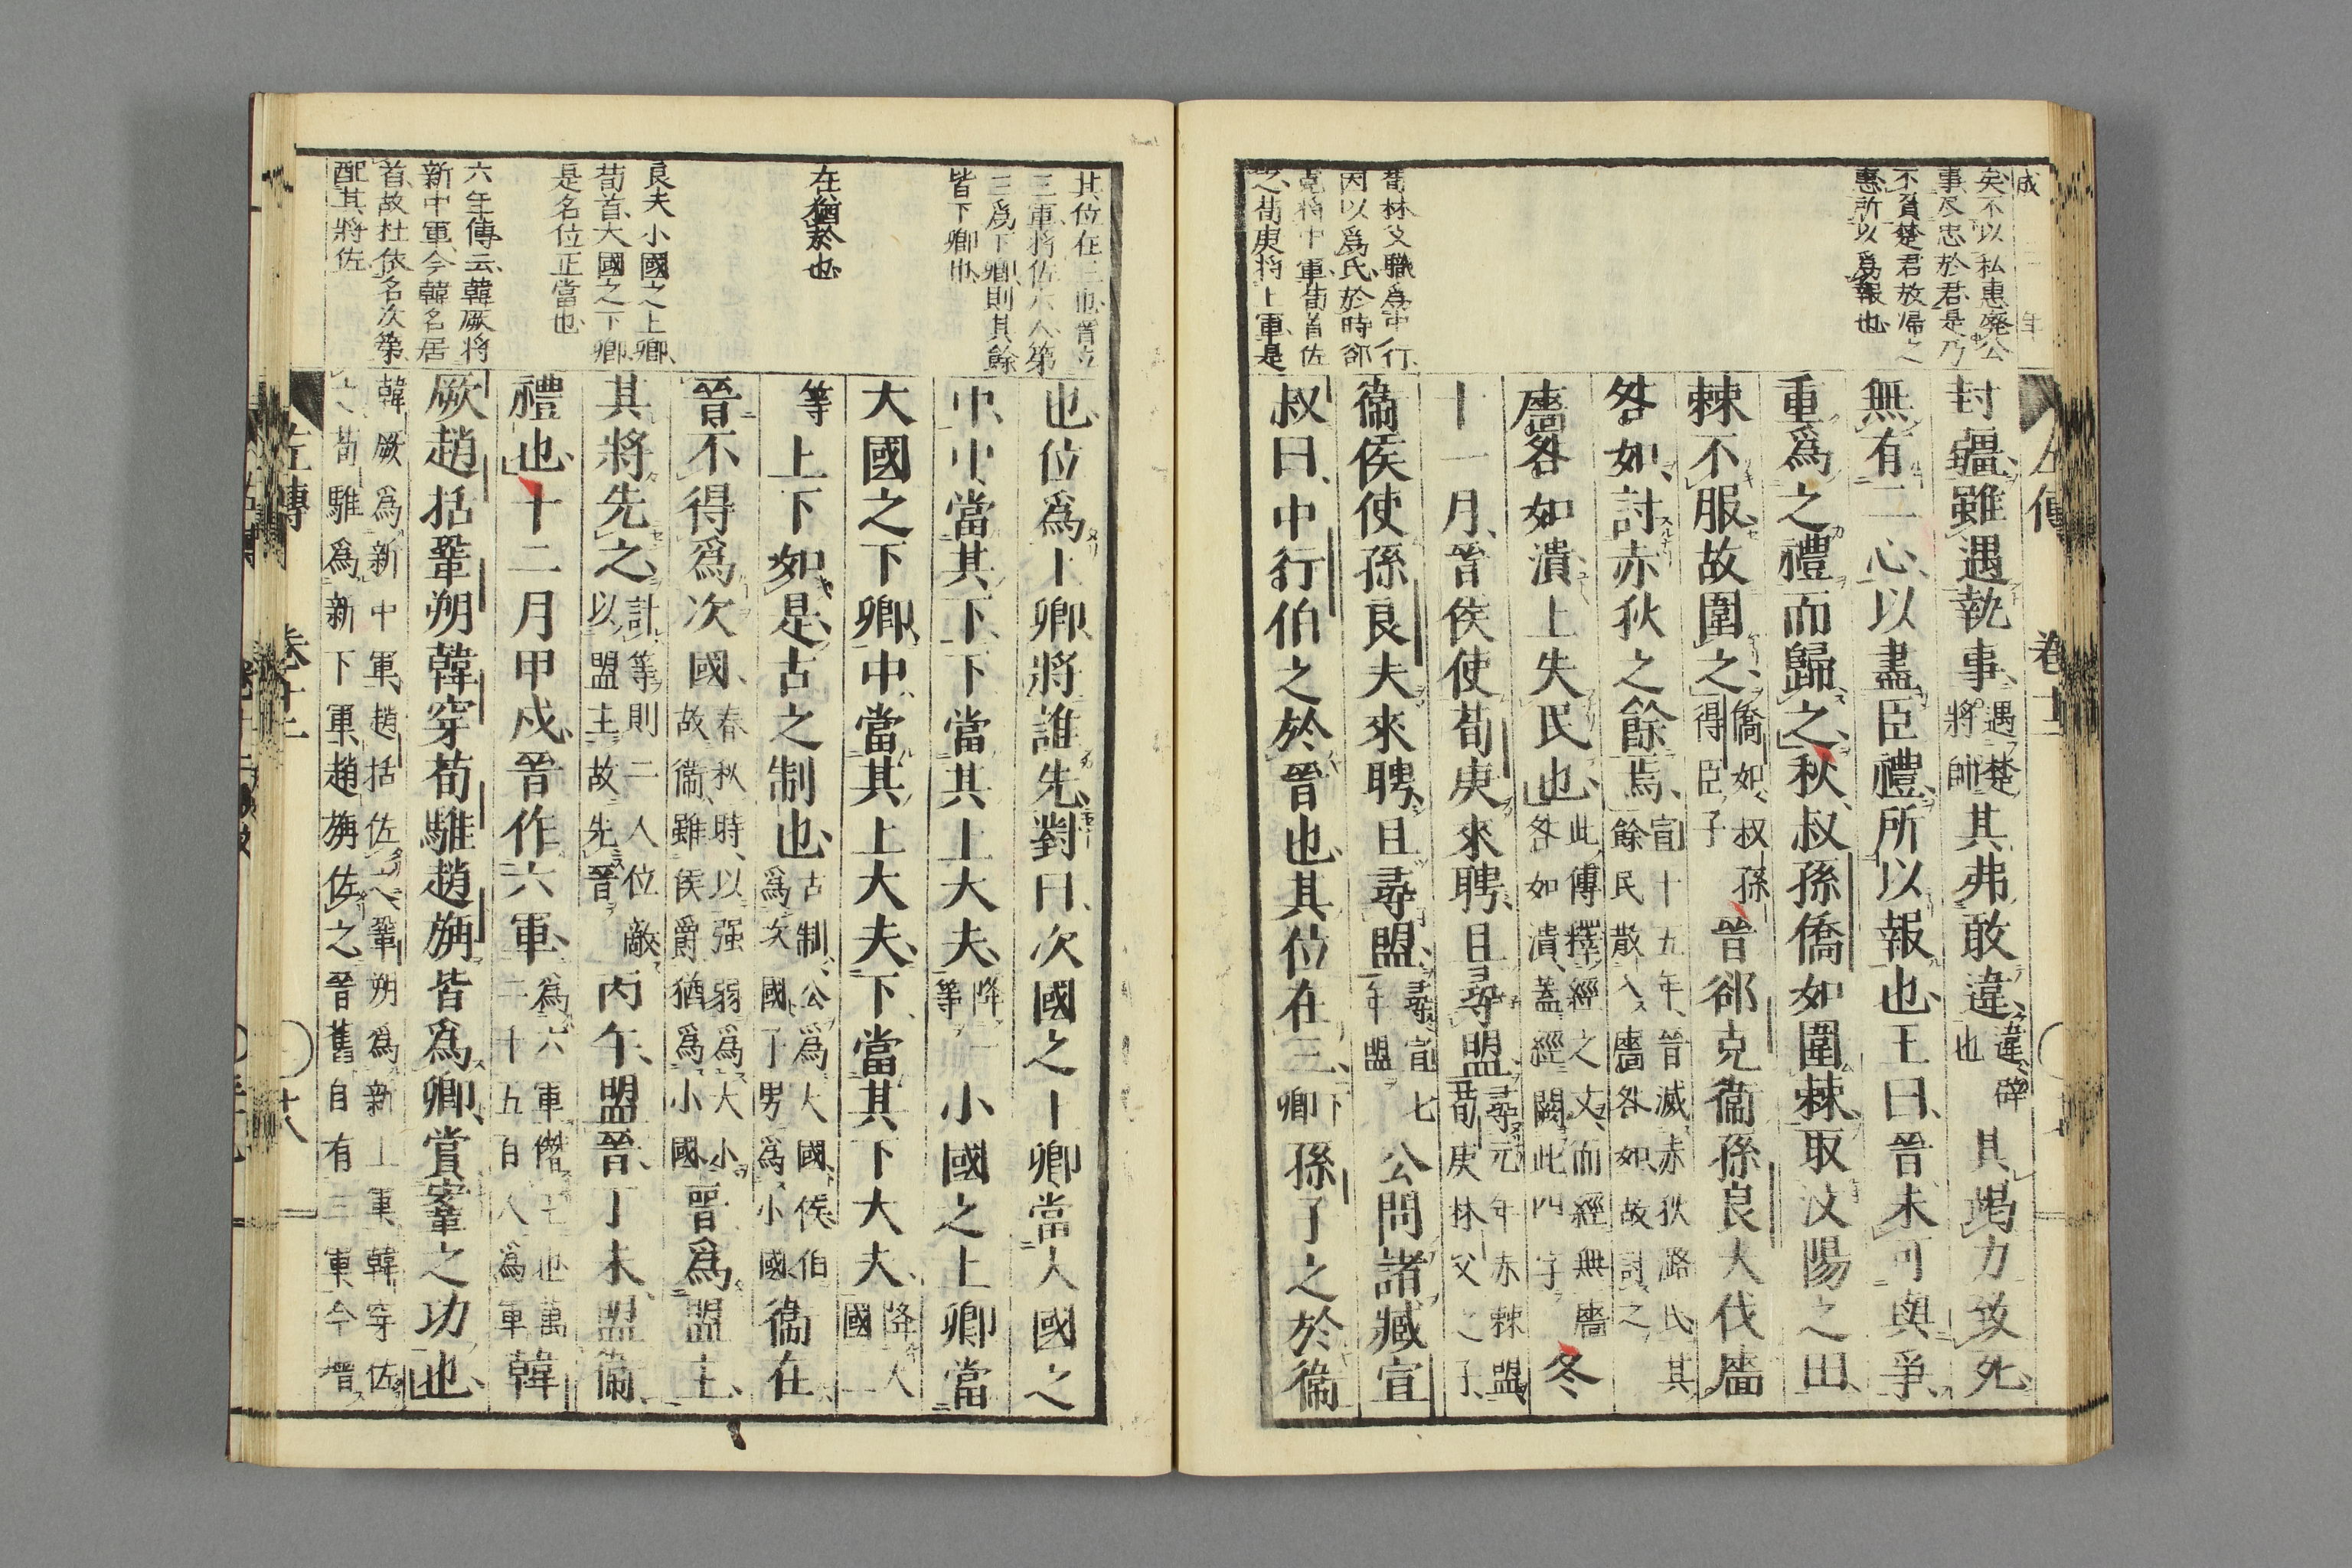 成 二 年
矣不以私惠廢公
事反忠於君是乃
不負楚君故帰之
惠所以爲報也
荀林父職爲中行
因以爲氏於時郤
克將中軍荀首佐
之荀庚將上軍是
左傳 卷十二
封疆雖遇執事遇楚將帥其弗敢違違辟也其竭力致死
無有二心以盡臣禮所以報也王曰晉未可與爭
重爲之禮而歸之秋叔孫僑如圍棘取汶陽之田
棘不服故圍之僑如叔孫得臣子晉郤克衞孫良夫伐廧
咎如討赤狄之餘焉宣十五年晉滅赤狄潞氏其餘民散入廧咎如故討之
廧咎如潰上失民也此傳釋經之文而經無廧咎如潰蓋經闕此四字冬
十一月晉侯使荀庚來聘且尋盟尋元年赤棘盟荀庚林父之子
衞侯使孫良夫來聘且尋盟尋宣七年盟公問諸臧宣
叔曰中行伯之於晉也其位在三下卿孫子之於衞
其位在三而晉立
三軍將佐六人第
三爲下卿則其餘
皆下卿也
在猶於也
良夫小國之上卿
荀首大國之下卿
是名位正當也
六年傳云韓厥將
新中軍今韓名居
首故杜依名次第
配其將佐
也位爲上卿將誰先對曰次國之上卿當大國之
中中當其下下當其上大夫降一等小國之上卿當
大國之下卿中當其上大夫下當其下大夫降大國二
等上下如是古之制也古制公爲大國侯伯爲次國子男爲小國衞在
晉不得爲次國春秋時以强弱爲大小故衞雖侯爵猶爲小國晉爲盟主
其將先之計等則二人位敵以盟主故先晉丙午盟晉丁未盟衞
禮也十二月甲戌晉作六軍爲六軍僭王也萬二千五百人爲軍韓
厥趙括鞏朔韓穿荀騅趙旃皆爲卿賞鞌之功也
韓厥爲新中軍趙括佐之鞏朔爲新上軍韓穿佐之荀騅爲新下軍趙旃佐之晉舊自有三軍今增
左傳 卷十二 十八